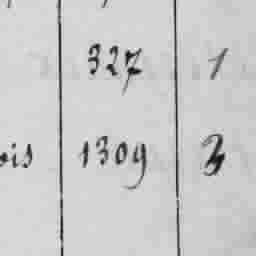 327 1
ois 1309 3